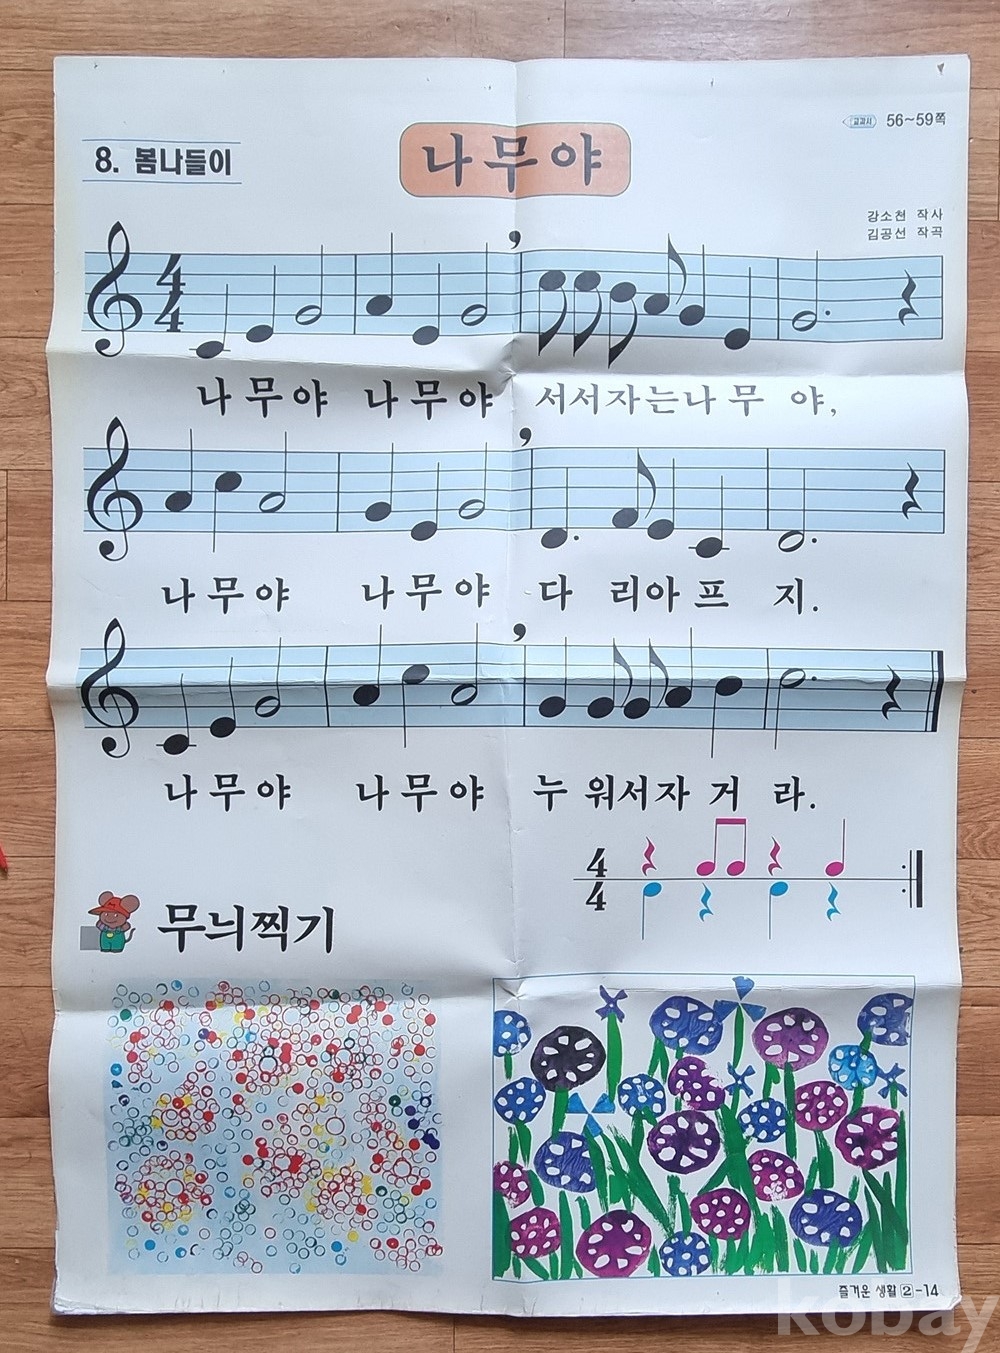 교과서 56~59쪽
8. 봄나들이
나무야
강소천 작사
김공선 작곡
4
4
나무야 나무야 서서자는나무 야,
나무야 나무야 다 리아프 지.
나무야 나무야 누 워서자 거 라.
4
4
무늬찍기
즐거운 생활 2-14
kobay